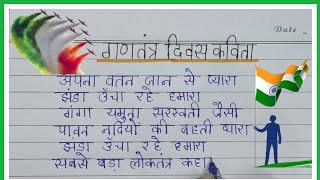 Date
गणतंत्र दिवस कविता
अपना वतन जान से प्यारा
झंडा ऊँचा रहे हमारा
गंगा यमुना सरस्वती जैसी
पावन नदियों की बहती प्यारा
झंडा ऊँचा रहे हमारा
सबसे बड़ा लोकतंत्र कहा